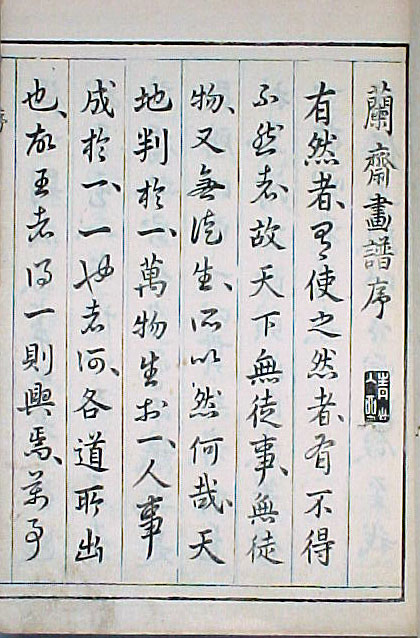 蘭齋畫譜序
有然者、有使之然者、有不得
不然者、故天下無徒事、無徒
物、又無徒生、所以然何哉、天
地判於一、萬物生於一、人事
成於一、一也者何、各道所出
也、故王者得一則興焉、萬事